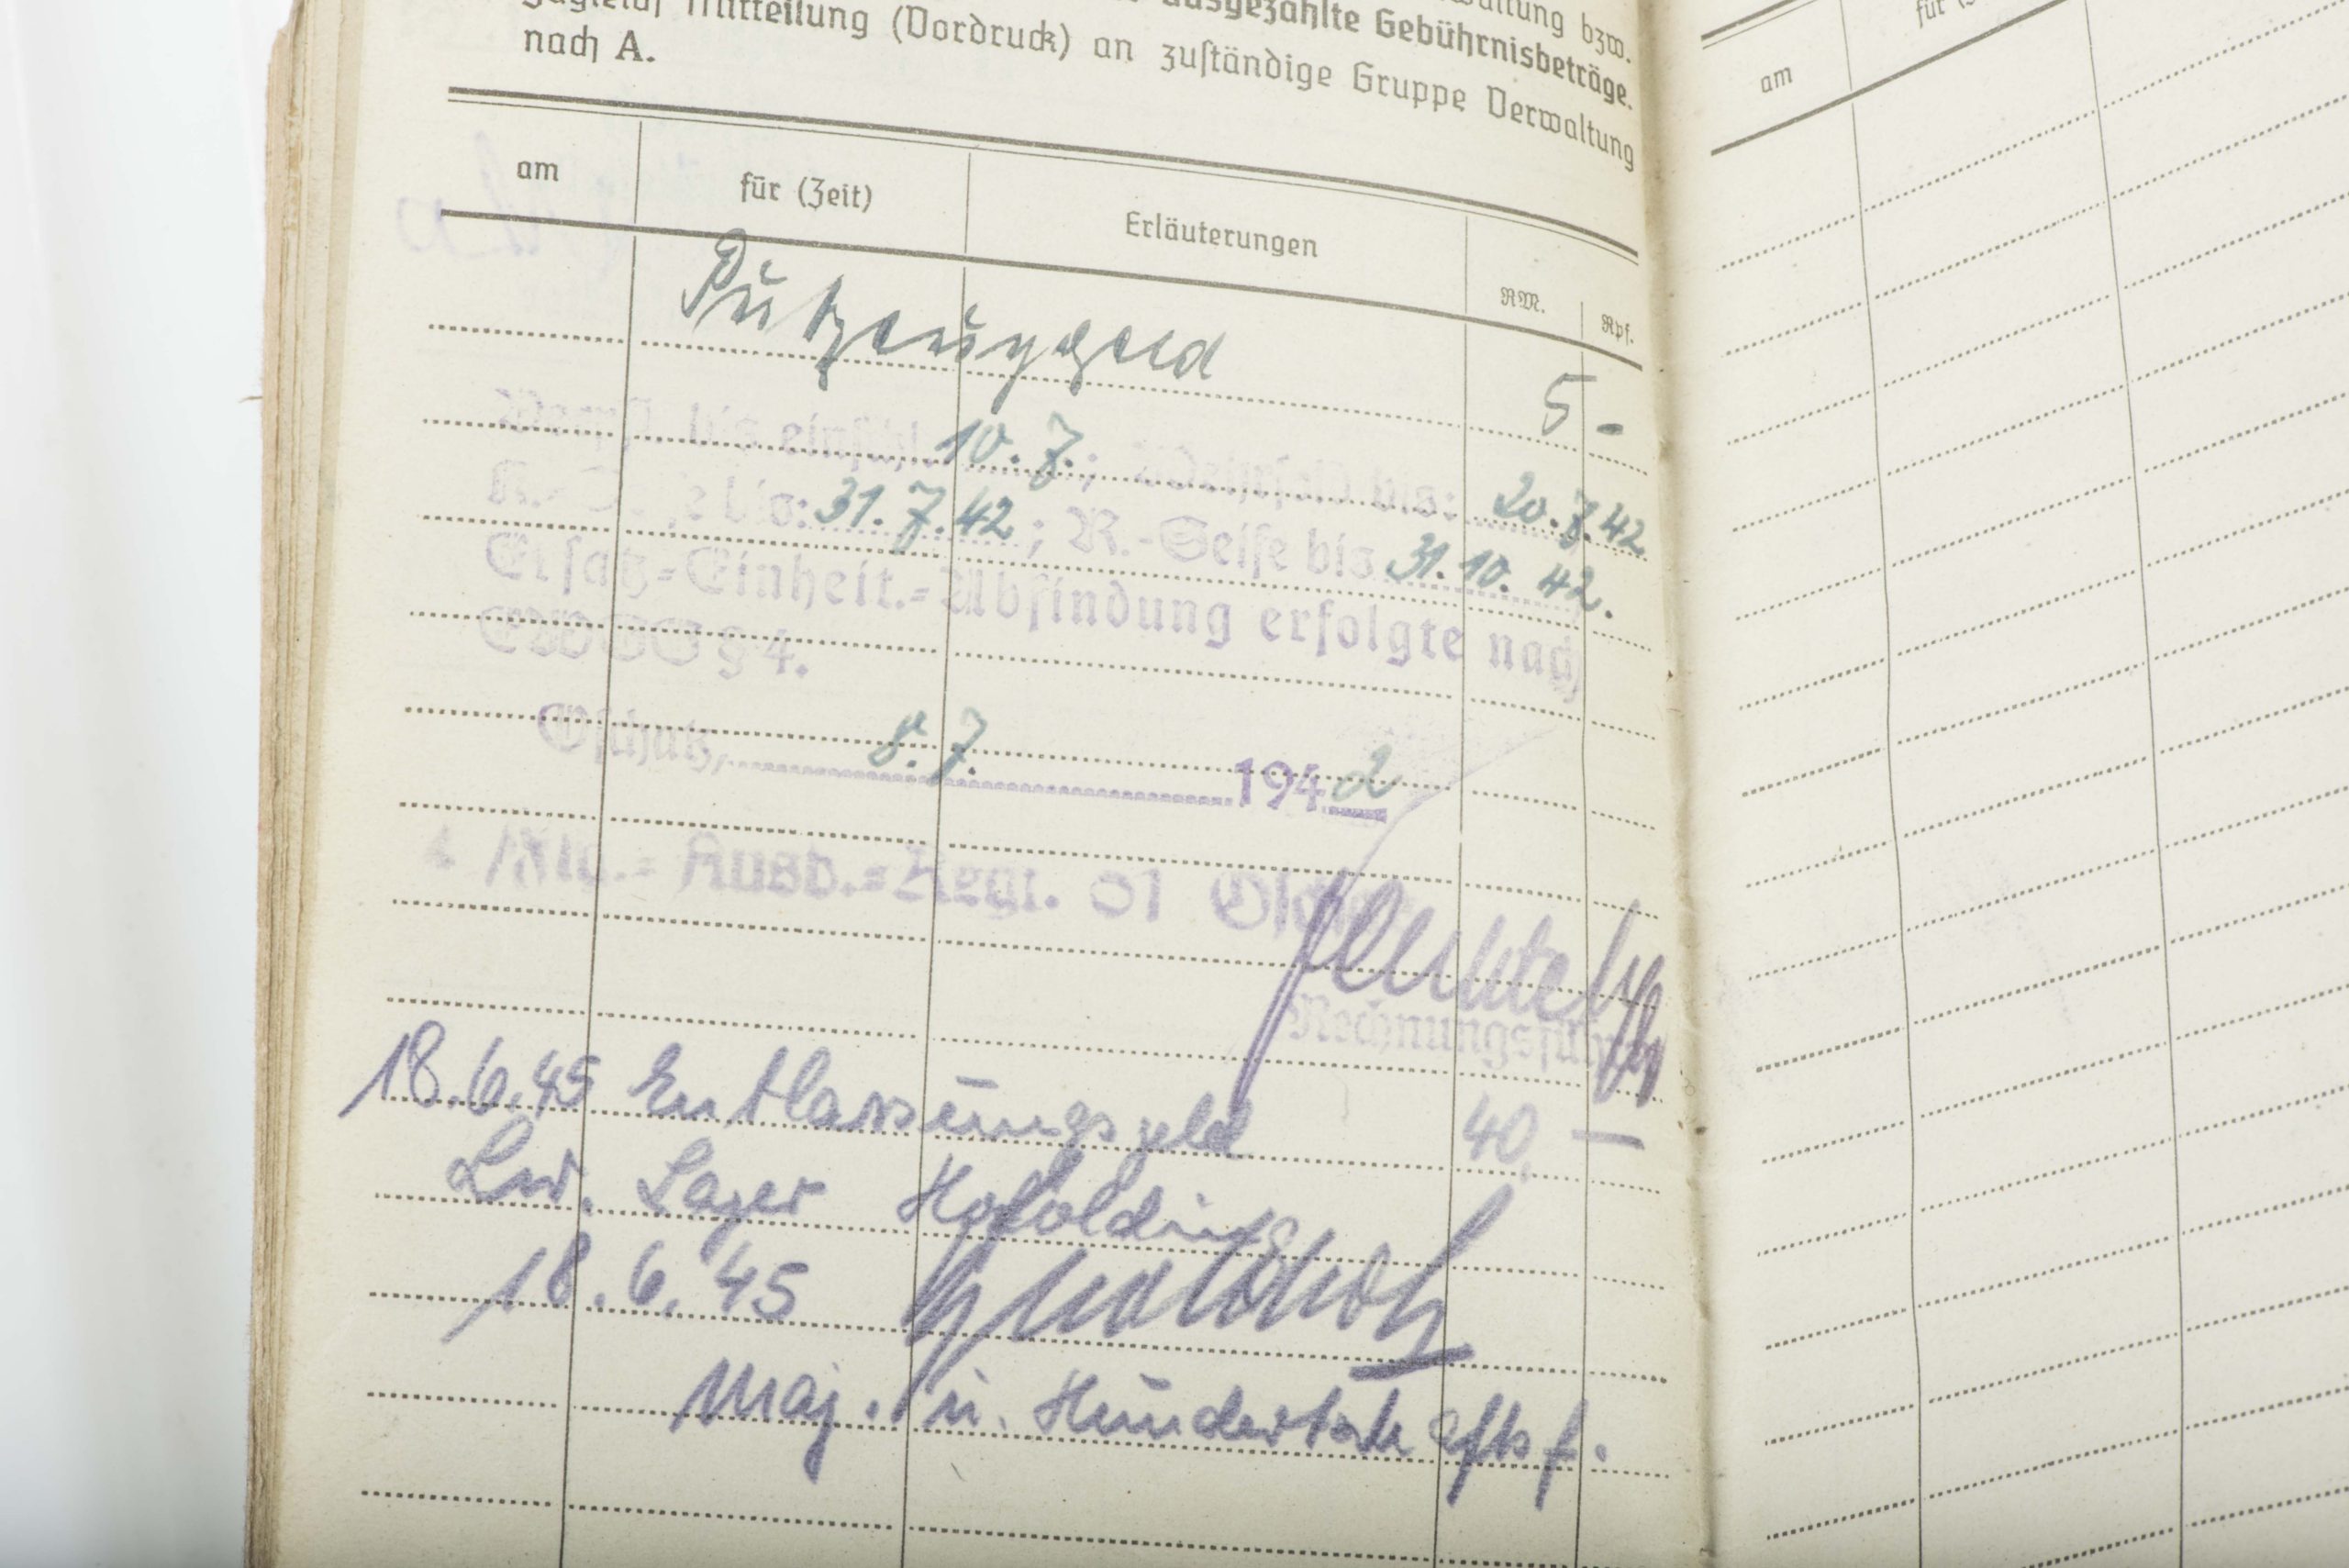 ausgezahlte Gebührnisbeträge.
Mitteilung (Vordruck) an zuständige Gruppe Verwaltung
nach A.
am für (Zeit) Erläuterungen RM. Rpf.
Putzzeuggeld 5 -
bis einschl. 10.7.; Wehrsold bis: 20.7.42
bis: 31.7.42; R.-Seife bis 31.10.42.
Ersatz-Einheit.-Abfindung erfolgte nach
EWGG § 4.
Oschatz, 8.7. 1942
Ausb.-Regt. 61
Rechnungsführer
18.6.45 Entlassungsgeld 40,—
Lw. Lager Hofolding
18.6.45
Maj. u. Hundertschaftsf.
am für